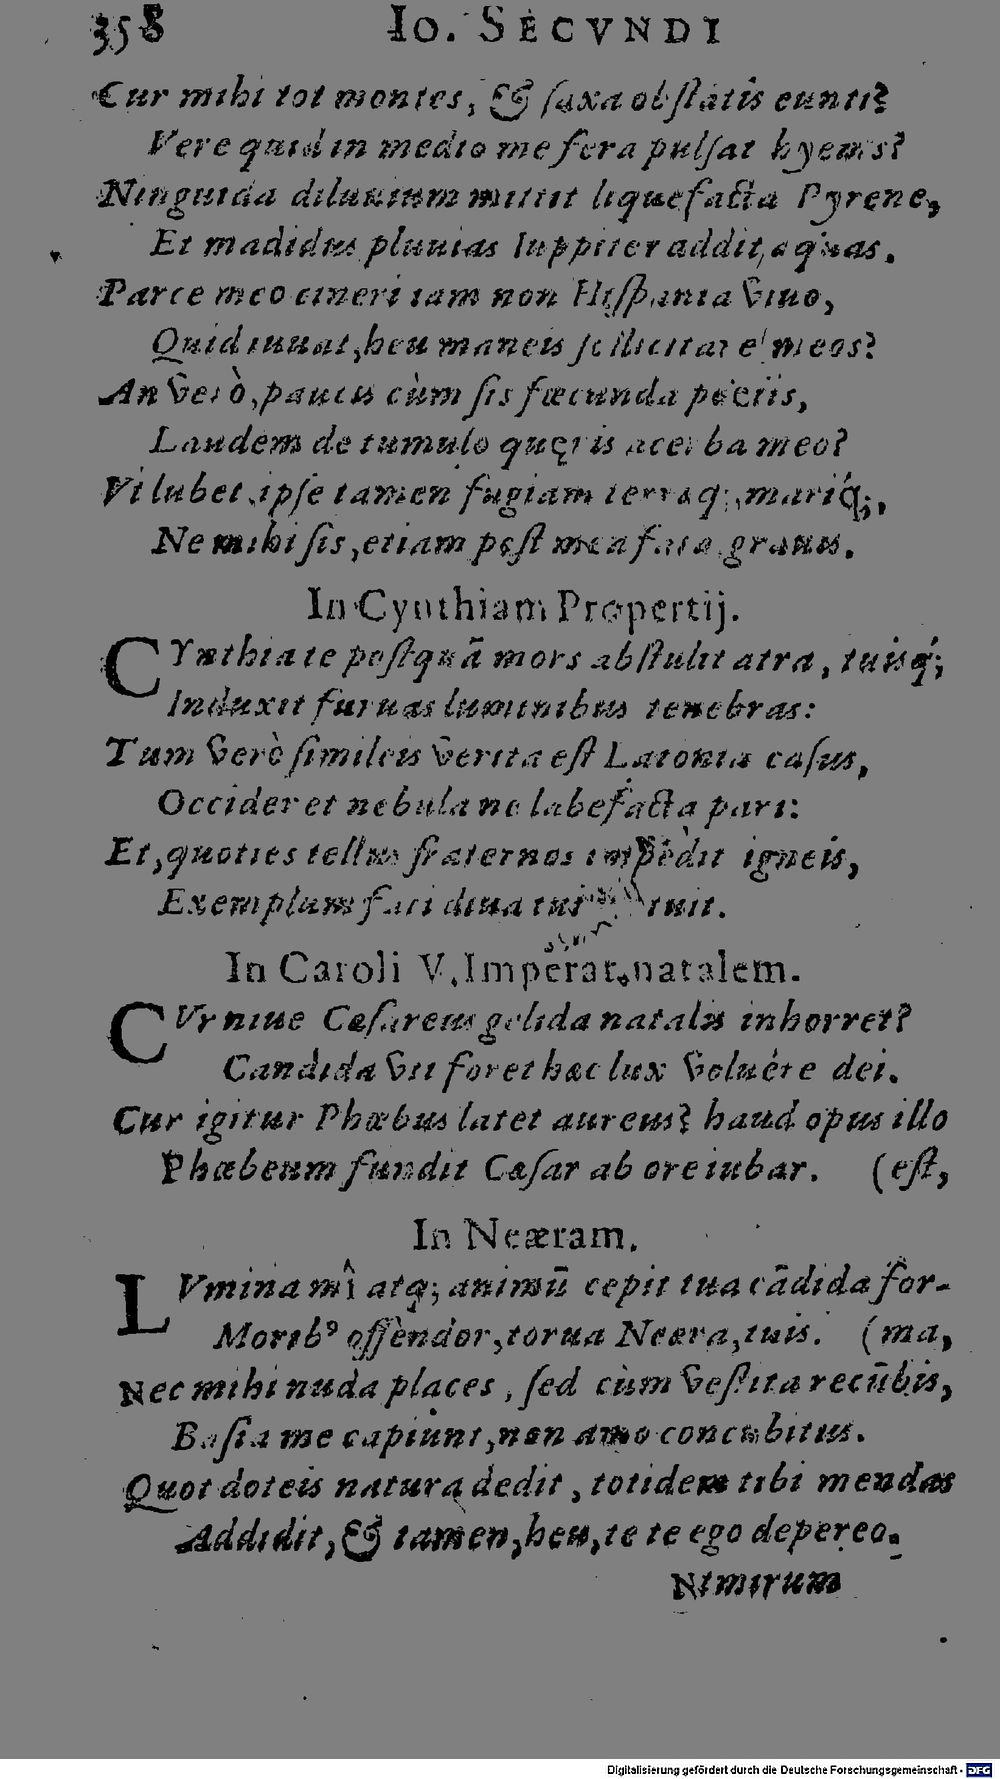 358 IO. SECVNDI
Cur mihi tot montes, & ſaxa obſtatis eunti?
Vere quid in medio me fera pulſat hyems?
Ninguida diluuium mittit liquefacta Pyrene,
Et madidus pluuias Iuppiter addit, aquas.
Parce meo cineri iam non Hiſpania viuo,
Quid iuuat, heu maneis ſollicitare meos?
An verò, paucis cùm ſis fœcunda poëtis,
Laudem de tumulo quęris acerba meo?
Vt lubet, ipſe tamen fugiam terraq;, mariq́;,
Ne mihi ſis, etiam poſt mea fata, grauis.
In Cynthiam Propertij.
CYnthia te poſtquā mors abſtulit atra, tuisq́;
Induxit furuas luminibus tenebras:
Tum verò ſimileis verita eſt Latonia caſus,
Occideret nebula ne labefacta pari:
Et, quoties tellus fraternos impedit igneis,
Exemplum faci diua tui tuit.
In Caroli V. Imperat. natalem.
CVr niue Cæſareus gelida natalis inhorret?
Candida vti foret hæc lux voluére dei.
Cur igitur Phœbus latet aureus? haud opus illo
Phœbeum fundit Cæſar ab ore iubar. (eſt,
In Neæram.
LVmina mî atq; animū cepit tua cādida for-
Moribꝰ offendor, torua Neæra, tuis. (ma,
Nec mihi nuda places, ſed cùm veſtita recūbis,
Baſia me capiunt, non amo concubitus.
Quot doteis natura dedit, totidem tibi mendas
Addidit, & tamen, heu, te te ego depereo.
Nimirum
Digitalisierung gefördert durch die Deutsche Forschungsgemeinschaft - DFG